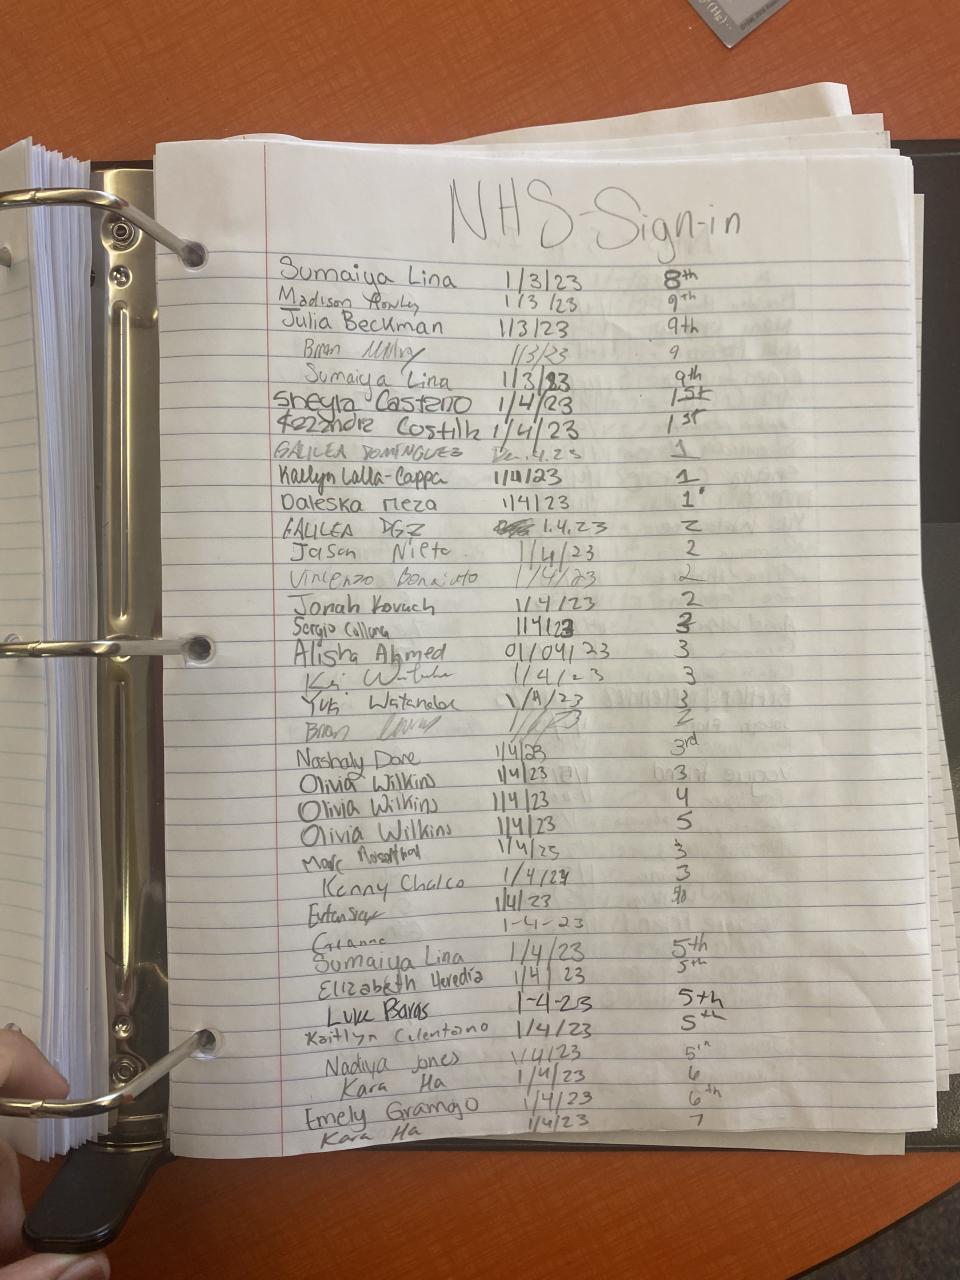 NHS-Sign-in
Sumaiya Lina 1/3/23 8th
Madison 1/3/23 9th
Julia Beckman 1/3/23 9th
Brian 1/3/23 9
Sumaiya Lina 1/3/23 9th
Sheyla 1/4/23 1st
1/4/23 1st
GALILEA DOMINGUEZ 1
Kaelyn Lalla-Cappa 1/4/23 1
Daleska Meza 1/4/23 1
GALILEA DGZ 1.4.23 2
Jason Nieto 1/4/23 2
Vincenzo 1/4/23 2
Jonah Kovach 1/4/23 2
Sergio 1/4/23 3
Alisha Ahmed 01/04/23 3
1/4/23 3
Yuki Watanabe 1/4/23 3
Brian 2
Nashaly 1/4/23 3rd
Olivia Wilkins 1/4/23 3
Olivia Wilkins 1/4/23 4
Olivia Wilkins 1/4/23 5
Marc Rosenthal 1/4/23 3
Kenny Chalco 1/4/23 3
1/4/23
1-4-23
Sumaiya Lina 1/4/23 5th
Elizabeth Heredia 1/4/23 5th
Luke 1-4-23 5th
Kaitlyn Celentano 1/4/23 5th
Nadiya Jones 1/4/23 5th
Kara Ha 1/4/23 6
Emely 1/4/23 6th
Kara Ha 1/4/23 7